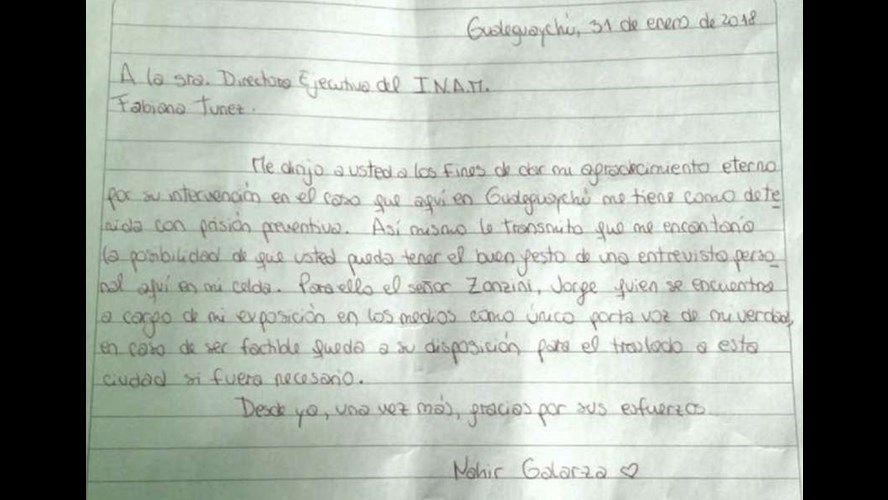 Gualeguaychú, 31 de enero de 2018
A la sra. Directora Ejecutiva del I.N.A.M.
Fabiana Tunez.
Me dirijo a usted a los fines de dar mi agradecimiento eterno
por su intervención en el caso que aquí en Gualeguaychú me tiene como dete
nida con prisión preventiva. Así mismo le transmito que me encantaría
la posibilidad de que usted pueda tener el buen gesto de una entrevista perso
nal aquí en mi celda. Para ello el señor Zonzini, Jorge quien se encuentra
a cargo de mi exposición en los medios como único porta voz de mi verdad,
en caso de ser factible queda a su disposición para el traslado a esta
ciudad si fuera necesario.
Desde ya, una vez más, gracias por sus esfuerzos.
Nahir Galarza ♡